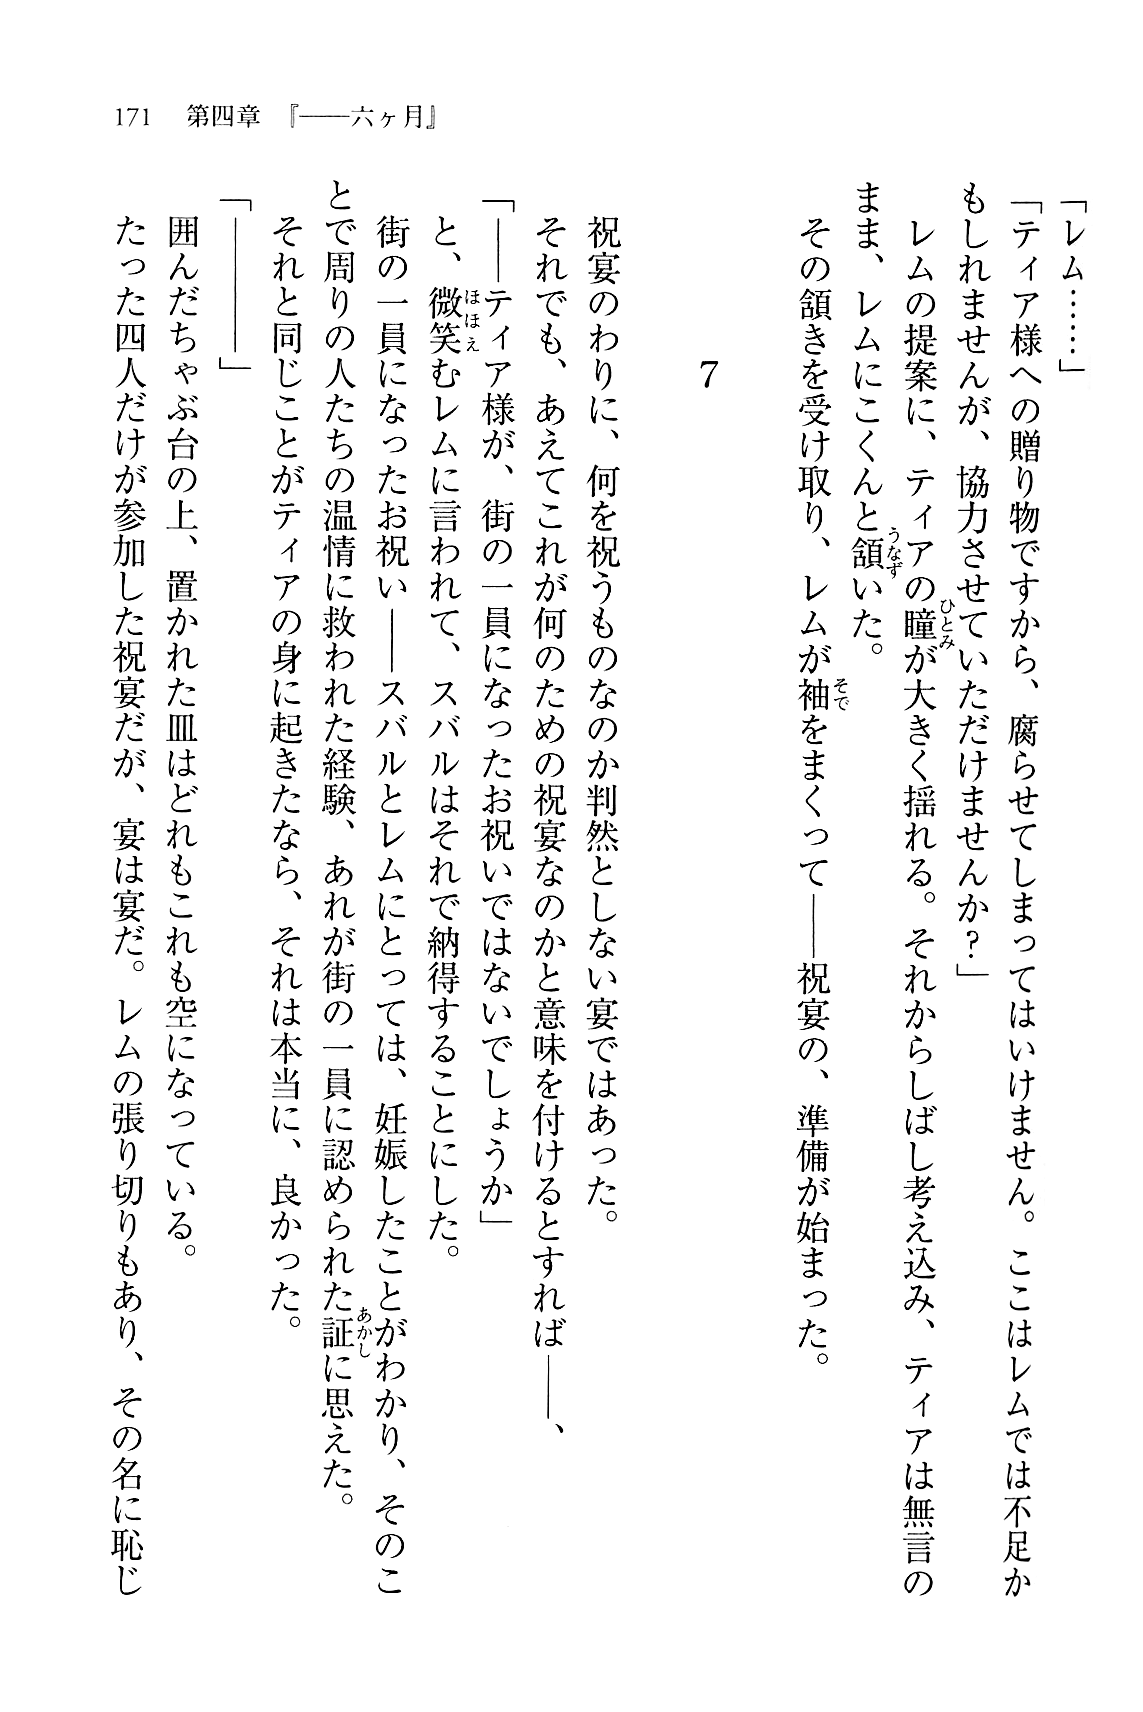 171　第四章　『――六ヶ月』
「レム……」
「ティア様への贈り物ですから、腐らせてしまってはいけません。ここはレムでは不足か
もしれませんが、協力させていただけませんか？」
　レムの提案に、ティアの瞳が大きく揺れる。それからしばし考え込み、ティアは無言の
まま、レムにこくんと頷いた。
　その頷きを受け取り、レムが袖をまくって――祝宴の、準備が始まった。
7
　祝宴のわりに、何を祝うものなのか判然としない宴ではあった。
　それでも、あえてこれが何のための祝宴なのかと意味を付けるとすれば――、
「――ティア様が、街の一員になったお祝いではないでしょうか」
　と、微笑むレムに言われて、スバルはそれで納得することにした。
　街の一員になったお祝い――スバルとレムにとっては、妊娠したことがわかり、そのこ
とで周りの人たちの温情に救われた経験、あれが街の一員に認められた証に思えた。
　それと同じことがティアの身に起きたなら、それは本当に、良かった。
「――――」
　囲んだちゃぶ台の上、置かれた皿はどれもこれも空になっている。
　たった四人だけが参加した祝宴だが、宴は宴だ。レムの張り切りもあり、その名に恥じ